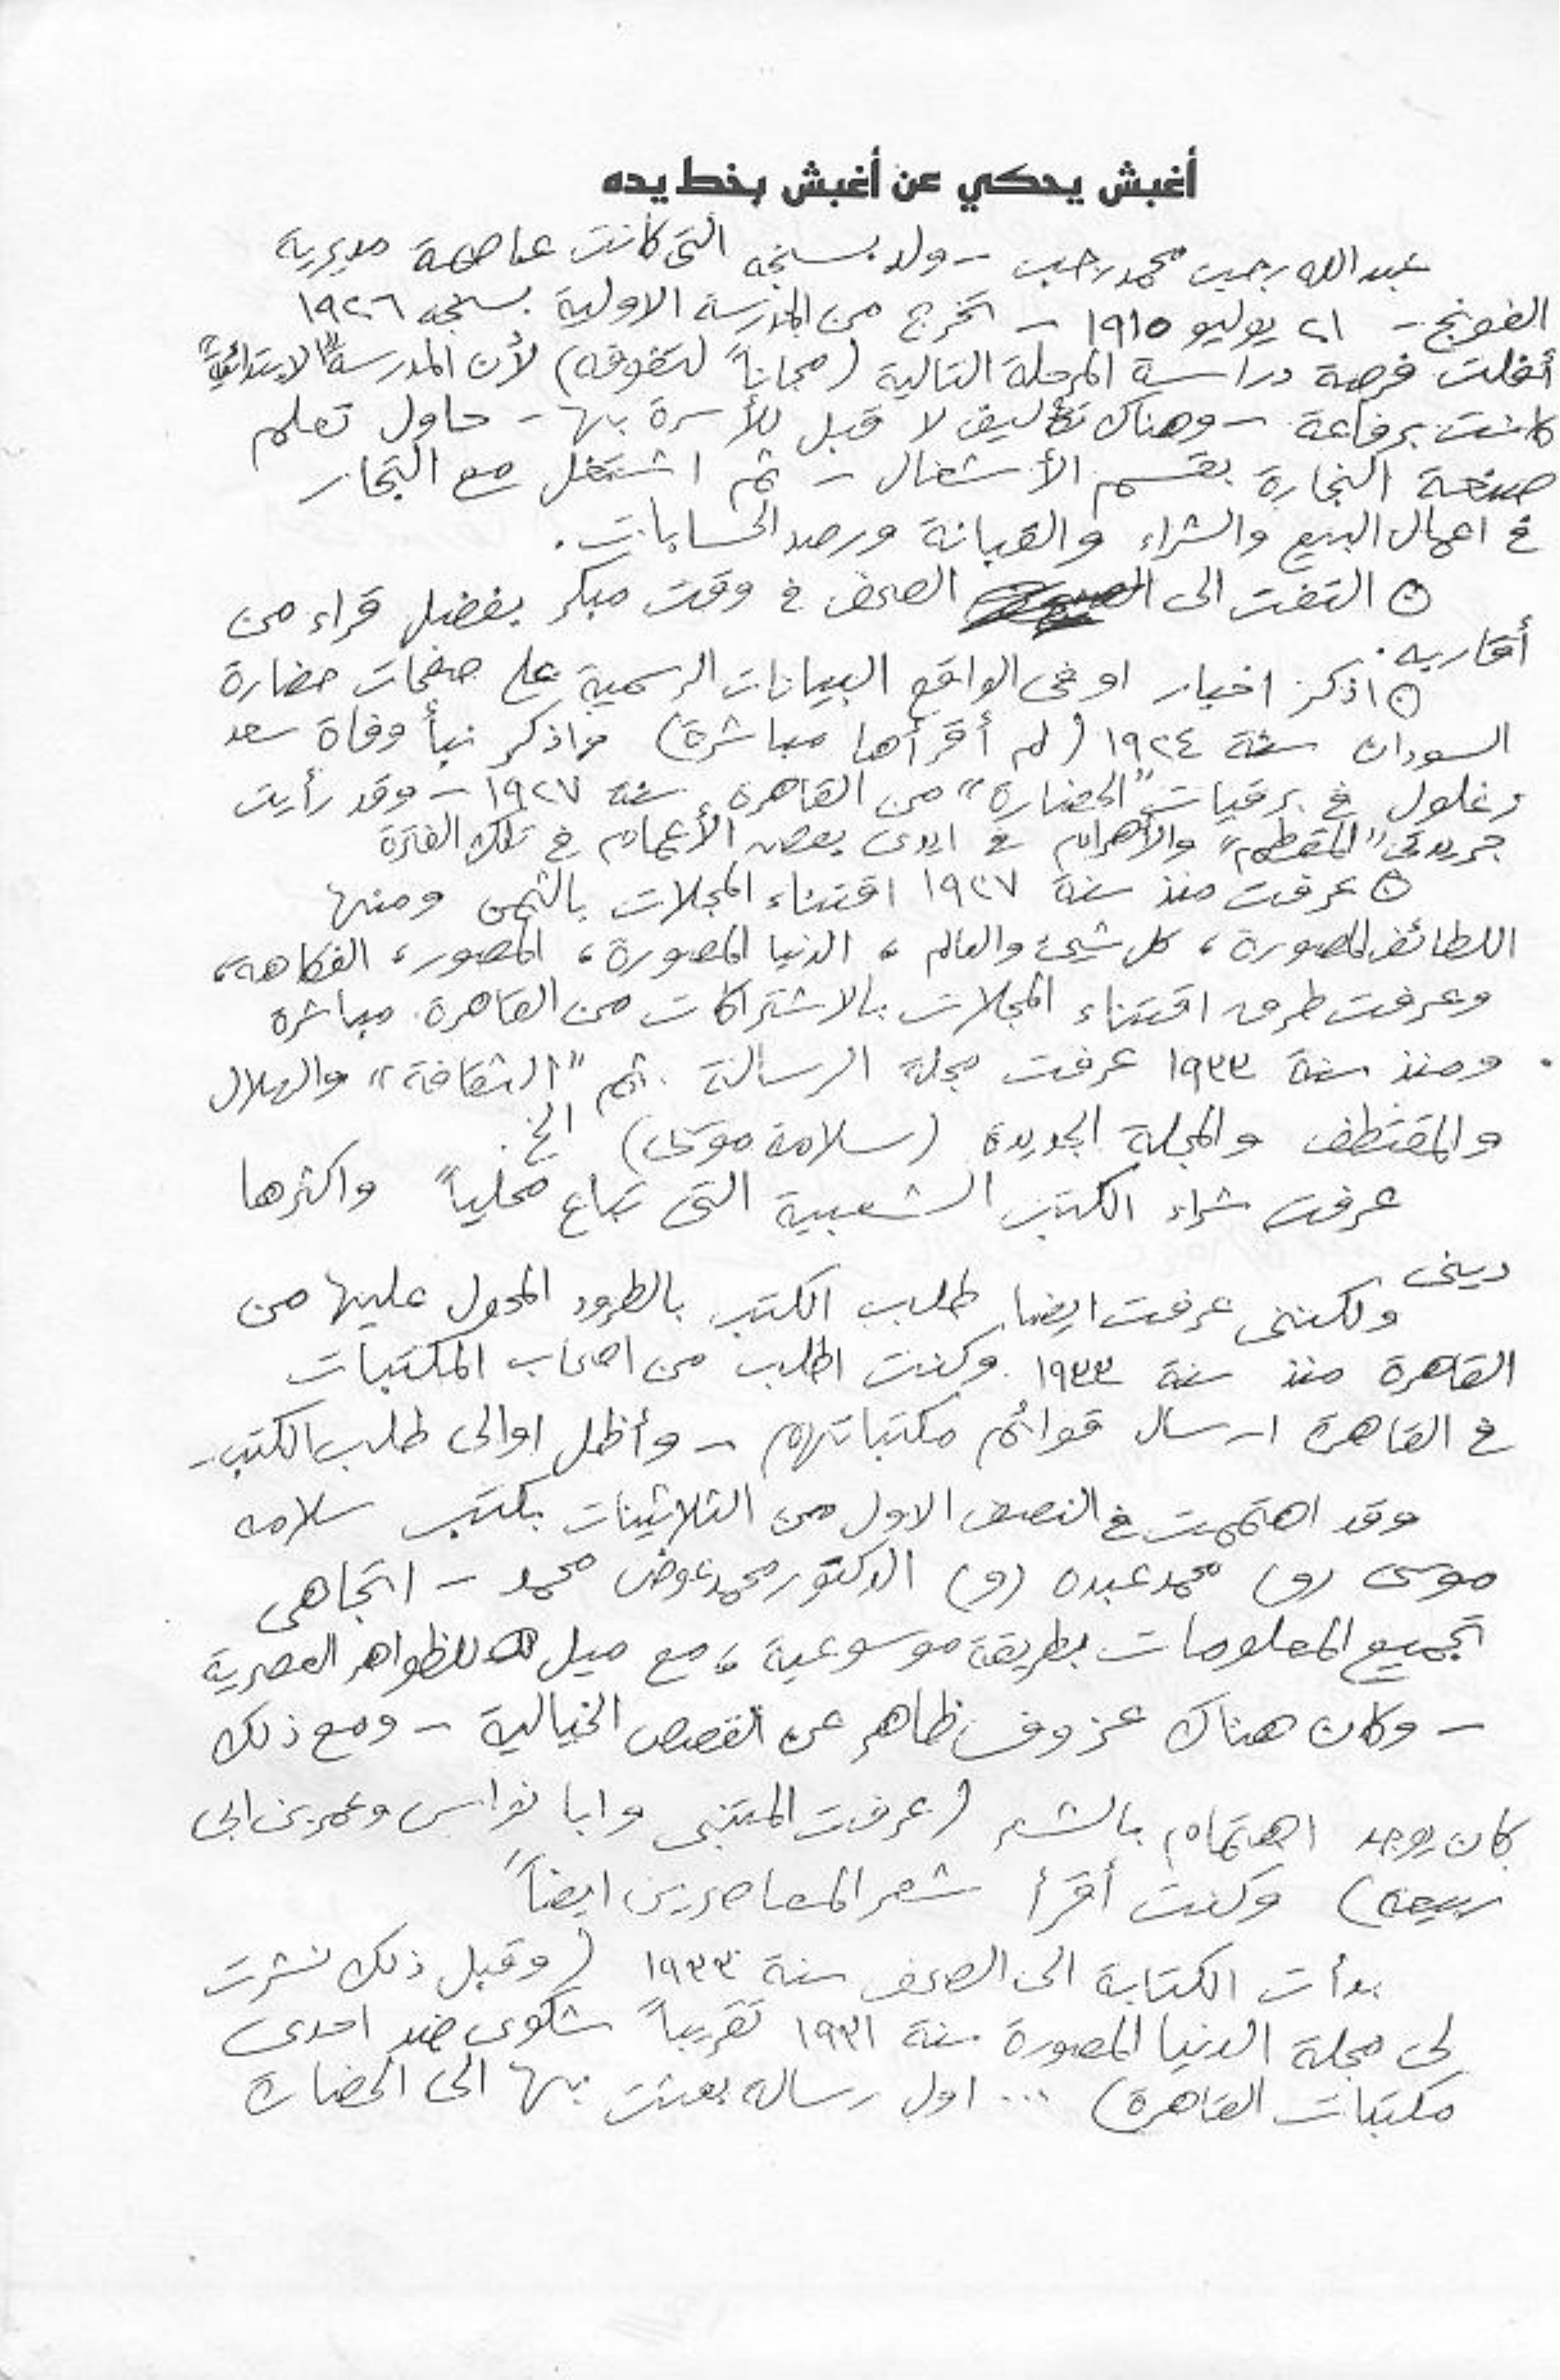 أغبش يحكي عن أغبش بخط يده
عبدالله رجب محمد رجب - ولد بسنجه التى كانت عاصمة مديرية
الفونج - ٢١ يوليو ١٩١٥ - تخرج من المدرسة الاولية بسنجه ١٩٢٦
أفلت فرصة دراسة المرحلة التالية (مجاناً لتفوقه) لأن المدرسة "الابتدائية"
كانت برفاعة - وهناك تكاليف لا قبل للأسرة بها - حاول تعلم
صنعة النجارة بقسم الأشغال - ثم اشتغل مع التجار
فى اعمال البيع والشراء والقبانة ورصد الحسابات.
○ التفت الى الصحف فى وقت مبكر بفضل قراء من
أقاربه.
○ اذكر اخبار او فى الواقع البيانات الرسمية على صفحات حضارة
السودان سنة ١٩٢٤ (لم أقرأها مباشرة) واذكر نبأ وفاة سعد
زغلول فى برقيات "الحضارة" من القاهرة سنة ١٩٢٧ - وقد رأيت
جريدتى "المقطم" والأهرام فى ايدى بعض الأعمام فى تلك الفترة
○ عرفت منذ سنة ١٩٢٧ اقتناء المجلات بالثمن ومنها
اللطائف المصورة، كل شيئ والعالم، الدنيا المصورة، المصور، الفكاهة،
وعرفت طرق اقتناء المجلات بالاشتراكات من القاهرة مباشرة
ومنذ سنة ١٩٣٣ عرفت مجلة الرسالة ثم "الثقافة" والهلال
والمقتطف والمجلة الجديدة (سلامة موسى) الخ.
عرفت شراء الكتب الشعبية التى تباع محلياً واكثرها
دينى
ولكننى عرفت ايضا طلب الكتب بالطرود المحول عليها من
القاهرة منذ سنة ١٩٣٣ وكنت اطلب من اصحاب المكتبات
فى القاهرة ارسال قوائم مكتباتهم - وأظل اوالى طلب الكتب -
وقد اهتممت فى النصف الاول من الثلاثينات بكتب سلامه
موسى (و) محمد عبده (و) الدكتور محمد عوض محمد - اتجاهى
تجميع المعلومات بطريقة موسوعية، مع ميل للظواهر العصرية
- وكان هناك عزوف ظاهر عن القصص الخيالية - ومع ذلك
كان يوجد اهتمام بالشعر (عرفت المتنبى وابا نواس وعمر بن ابى
ربيعه) وكنت أقرأ شعر المعاصرين ايضاً
بدأت الكتابة الى الصحف سنة ١٩٣٣ (وقبل ذلك نشرت
لى مجلة الدنيا المصورة سنة ١٩٣١ تقريباً شكوى ضد احدى
مكتبات القاهرة) ... اول رسالة بعثت بها الى الحضارة